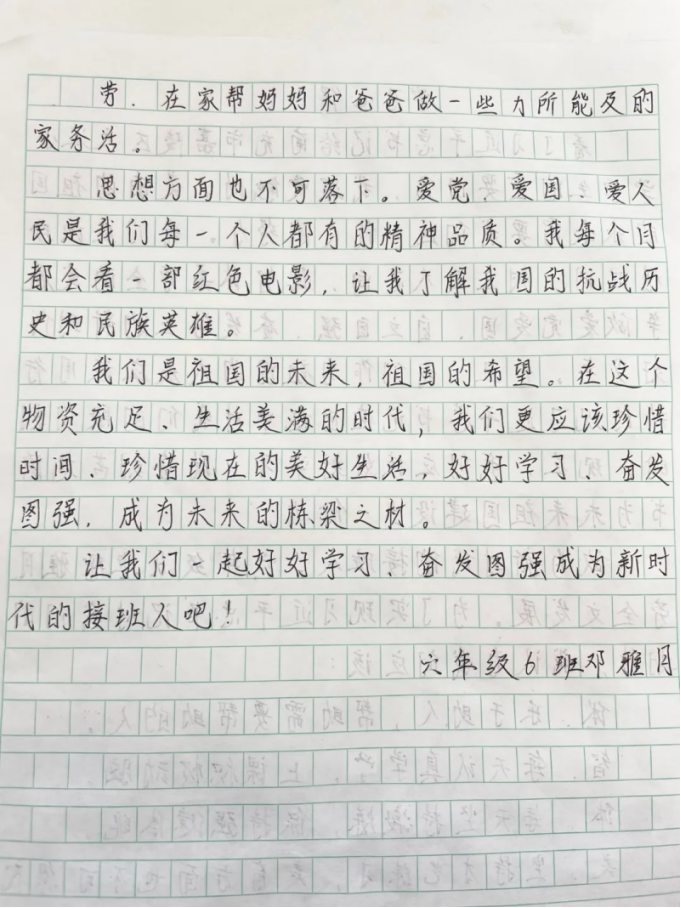 劳.在家帮妈妈和爸爸做一些力所能及的
家务活。
思想方面也不可落下。爱党、爱国、爱人
民是我们每一个人都有的精神品质。我每个月
都会看一部红色电影,让我了解我国的抗战历
史和民族英雄。
我们是祖国的未来,祖国的希望。在这个
物资充足、生活美满的时代,我们更应该珍惜
时间、珍惜现在的美好生活,好好学习、奋发
图强,成为未来的栋梁之材。
让我们一起好好学习、奋发图强成为新时
代的接班人吧!
六年级6班邓雅月